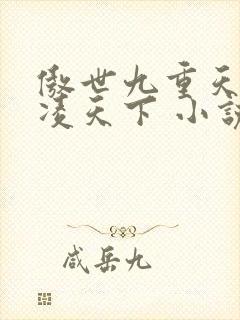 傲世九重天
凌天下 小説
咸岳九